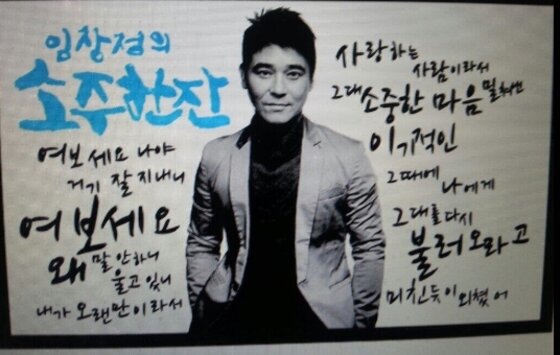 임창정의
소주한잔
여보세요 나야
거기 잘 지내니
여보세요
왜 말 안하니
울고 있니
내가 오랜만이라서
사랑하는
사람이라서
그대 소중한 마음 밀쳐낸
이기적인
그때에 나에게
그대를 다시
불러오라고
미친듯이 외쳤어